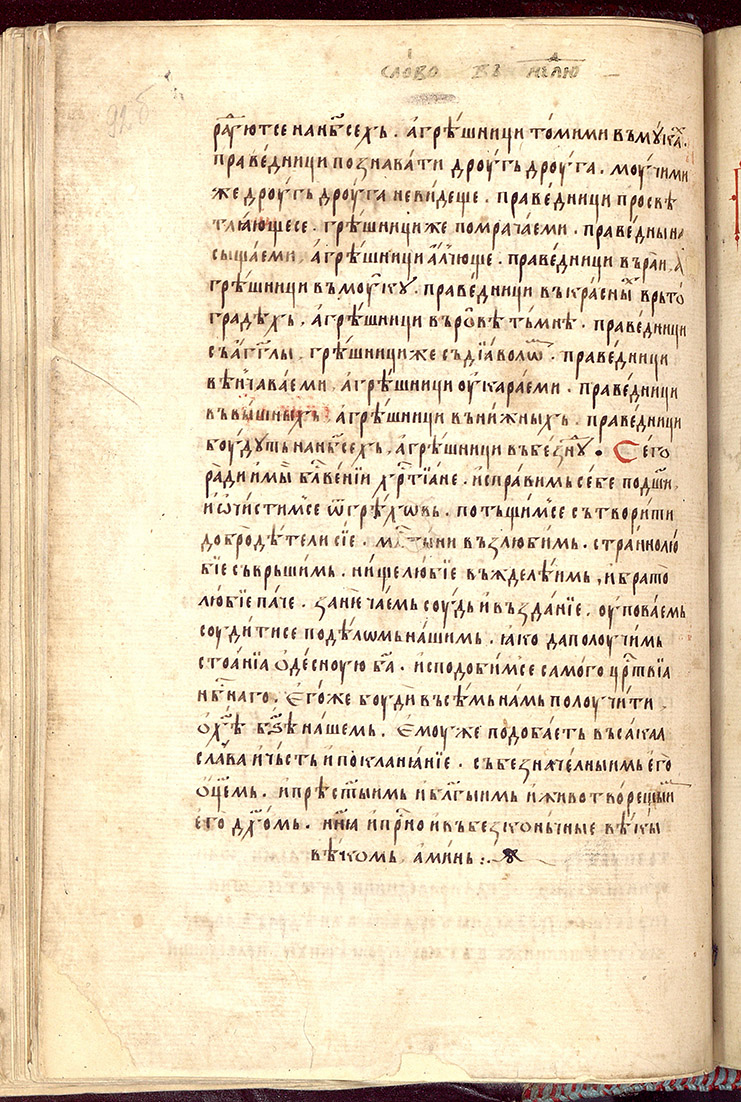 слово въ нєлю
92б
раⷣютсе нанб҃сехь . а҆грѣ́шници то́мими въмꙋ́кахъ
праве́дници познава́ти дроу́гъ дроу́га . моу́чими
же дроу́гь дроу́га неви́деще . праве́дници просвѣ
тлꙗ́ющесе . грѣ́шници же помрача́еми . праве́дныи на
сыща́еми . а҆грѣ́шници а҆́лчюще . праве́дници въраи , а҆
грѣ́шници въмоу́кꙋ . праве́дници въкра́сныⷯ врьто́
гра́дѣхь , а҆грѣ́шници въро́вѣ тъ́мнѣ . праве́дници
съа҆́гг҃лы , грѣ́шници же съдїа́воломъ . праве́дници
вѣнча́ваеми , а҆грѣ́шници оу҆кара́еми . праве́дници
въвы́шныхъ а҆грѣ́шници въни́жныхъ . праве́дници
боу́дꙋть нанб҃сехь , а҆грѣ́шници въбе́знꙋ . Сего̀
ра́ди и҆мы̀ блⷭ҇ве́нїи хрⷭ҇тїа́не . и҆спра́вимь се́бе подщи
и҆ѡ҆чи́стимⸯсе ѿгрѣ́хѡвь . потъщи́мⸯсе сътвори́ти
добродѣ́тели сїе . млⷭ҇тыни възлю́бимь . страннолю́
бїе съврьши́мь . нищелю́бїе въжделѣ́имь , и҆бра́то
любїе па́че . занѥ ча́емь соу́дь и҆възда́нїе , оу҆пова́емь
соуди́тисе подѣ́лѡмь на́шимь . ꙗ҆́ко да полоу́чимь
стоа́нїа ѡ҆десноую б҃а . и҆сподоби́мⸯсе само́го црⷭ҇твїа
нб҃наго . Е҆го́же боу́ди въсѣ́мь на́мь полоучи́ти .
ѡ҆хⷭ҇ѣ бз҃ѣ на́шемь . Е҆моуже подоба́еть въса́каа
сла́ва и҆ че́сть и҆ покланꙗ́нїе . събезначе́лныимь е҆го̀
ѻ҆ц҃емь . и҆прѣст҃ыимь и҆бл҃гыимь и҆животво́рещїим
е҆го дх҃ѡмь . нн҃ꙗ и҆при́сно и҆въбесконьчные вѣ́кы
вѣ́комь , а҆ми́нь :·